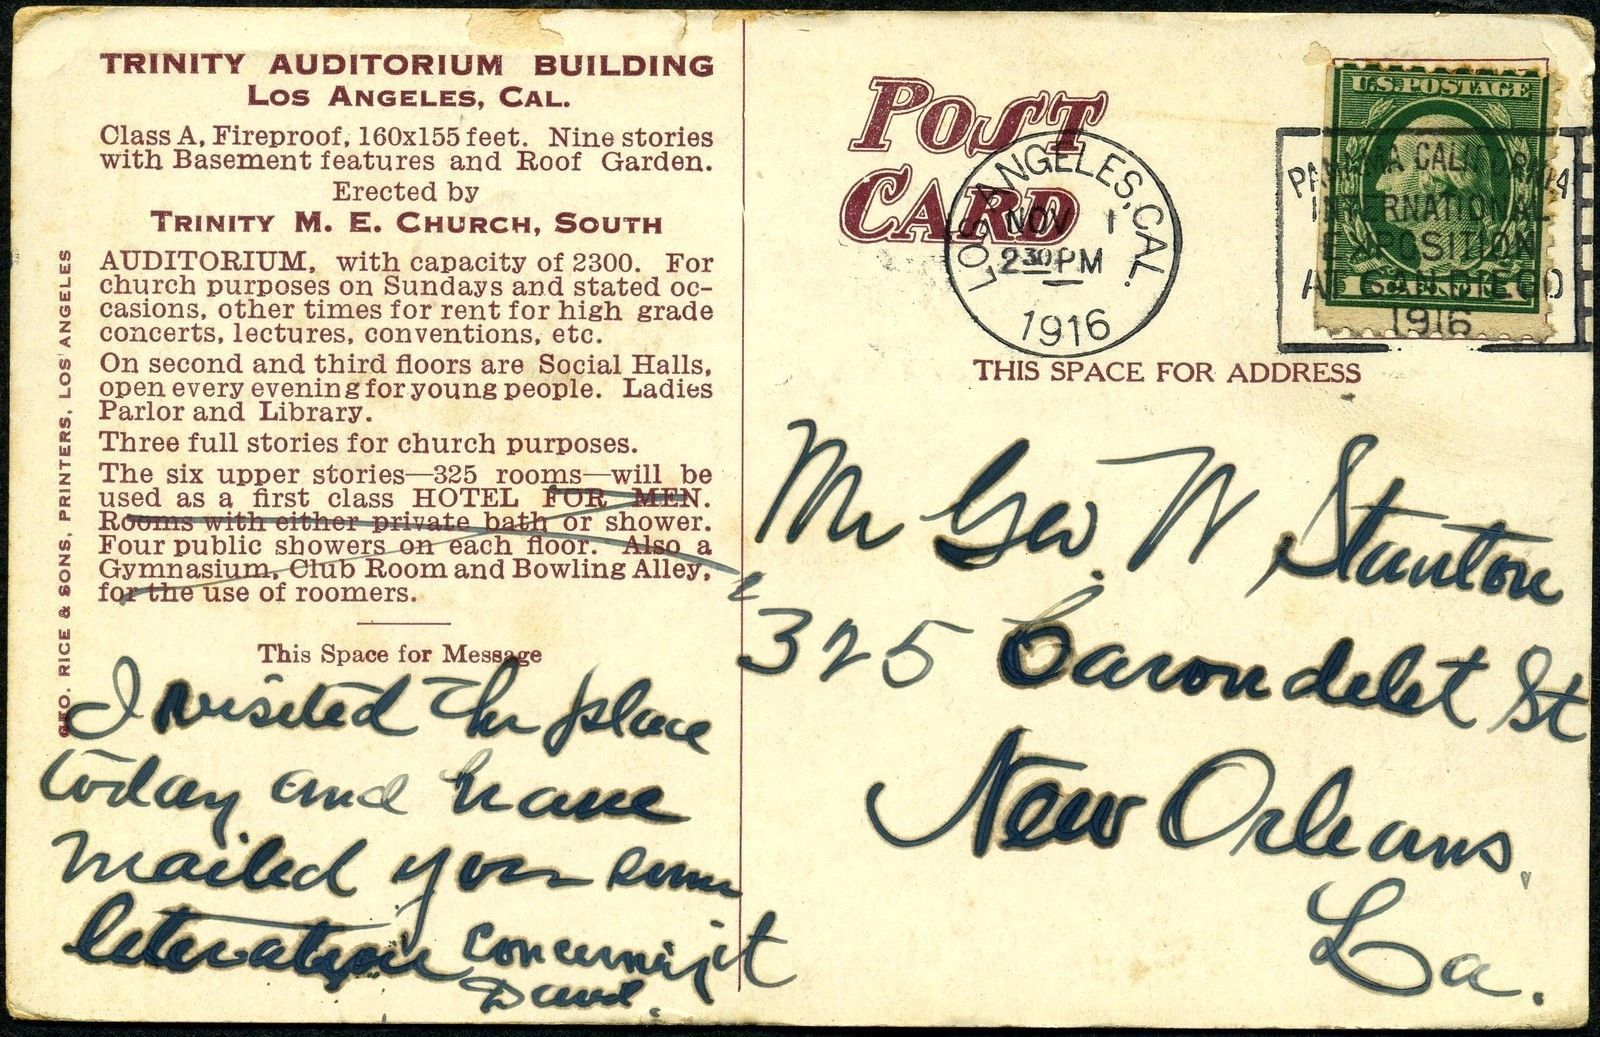 TRINITY AUDITORIUM BUILDING
LOS ANGELES, CAL.
Class A, Fireproof, 160x155 feet. Nine stories
with Basement features and Roof Garden.
Erected by
TRINITY M. E. CHURCH, SOUTH
AUDITORIUM, with capacity of 2300. For
church purposes on Sundays and stated oc-
casions, other times for rent for high grade
concerts, lectures, conventions, etc.
On second and third floors are Social Halls,
open every evening for young people. Ladies
Parlor and Library.
Three full stories for church purposes.
The six upper stories—325 rooms—will be
used as a first class HOTEL FOR MEN.
Rooms with either private bath or shower.
Four public showers on each floor. Also a
Gymnasium, Club Room and Bowling Alley,
for the use of roomers.
This Space for Message
I visited the place
today and have
mailed you some
literature concerning it
David.
GEO. RICE & SONS, PRINTERS, LOS ANGELES
POST
CARD
LOS ANGELES, CAL.
NOV 1
2 30 PM
1916
U.S. POSTAGE
PANAMA CALIFORNIA
INTERNATIONAL
EXPOSITION
AT SAN DIEGO
1916
THIS SPACE FOR ADDRESS
Mr Geo. W Stanton
325 Carondelet St
New Orleans.
La.